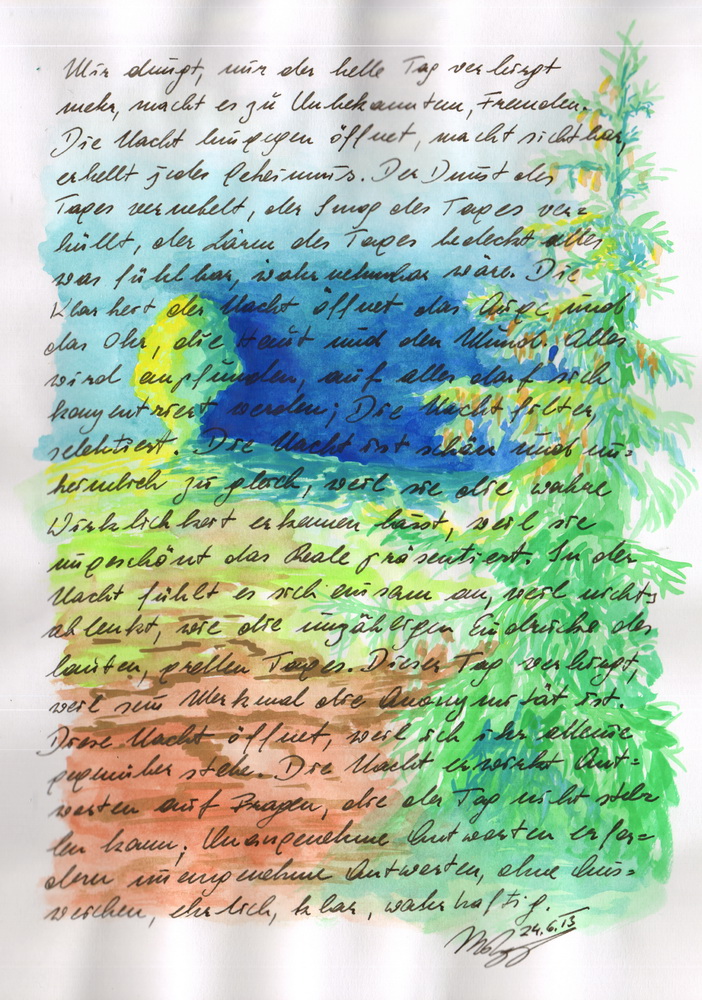 Mir düngt, nur der helle Tag verbirgt
mehr, macht es zu Unbekanntem, Fremden.
Die Nacht hingegen öffnet, macht sichtbar,
erhellt jedes Geheimnis. Der Dunst des
Tages vernebelt, der Smog des Tages ver=
hüllt, der Lärm des Tages bedeckt alles
was fühlbar, wahrnehmbar wäre. Die
Klarheit der Nacht öffnet das Auge und
das Ohr, die Haut und den Mund. Alles
wird empfunden, auf alles darf sich
konzentriert werden; Die Nacht filtert,
selektiert. Die Nacht ist schön und un=
heimlich zu gleich, weil sie die wahre
Wirklichkeit erkennen lässt, weil sie
ungeschönt das Reale präsentiert. In der
Nacht fühlt es sich einsam an, weil nichts
ablenkt, wie die unzähligen Eindrücke des
lauten, grellen Tages. Dieser Tag verbirgt,
weil sein Merkmal die Anonymität ist.
Diese Nacht öffnet, weil ich ihr alleine
gegenüber stehe. Die Nacht erwirkt Ant=
worten auf Fragen, die der Tag nicht stel=
len kann; Unangenehme Antworten erfor=
dern unangenehme Antworten, ohne Aus=
weichen, ehrlich, klar, wahrhaftig.
24.6.13